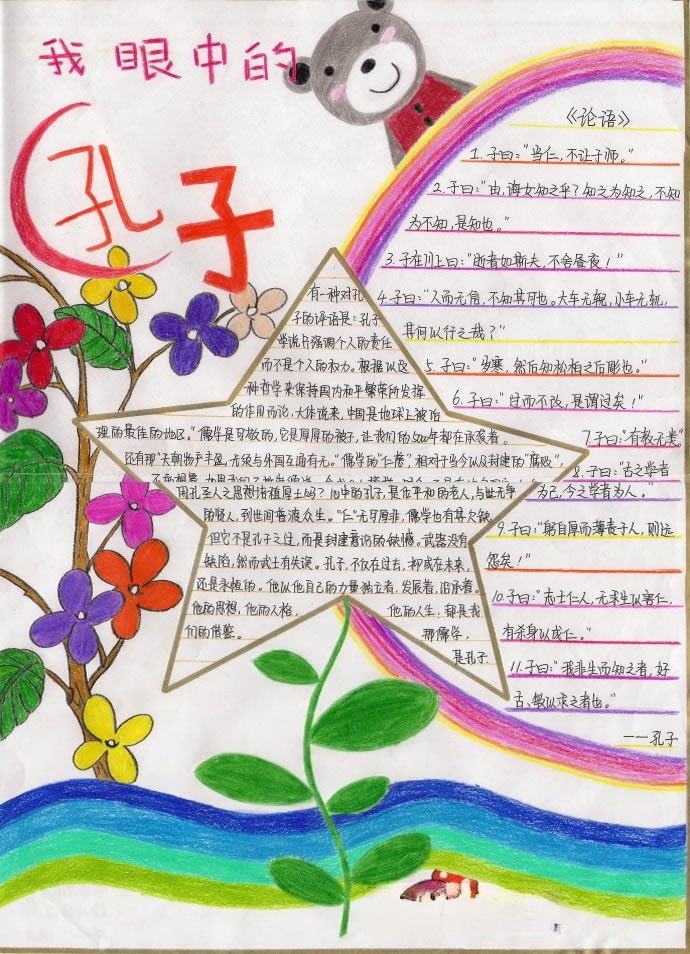 我眼中的
孔子
有一种对孔
子的评语是：孔子
学说只强调个人的责任
而不是个人的权力。根据以及
种哲学来保持国内和平繁荣所发挥
的作用而论，大体说来，中国是地球上被治
理的最佳的地区。"儒学是可敬的，它是厚厚的被子，让我们的500年都在承袭着。
还有那"天朝物产丰盛，无须与外国互通有无。"儒学的"仁爱"，相对于当今以及封建的"腐败"
用孔圣人之思想清楚厚土吗？心中的孔子，是位平和的老人，与世无争
的贤人，到世间普渡众生。"仁"无可厚非，儒学也有其欠缺
但它不是孔子之过，而是封建意识的缺憾。武器没有
缺陷，然而武士有失误。孔子，不仅在过去，抑或在未来，
还是永恒的。他以他自己的力量独立着，发展着，沿承着。
他的思想，他的人格，他的人生，都是我
们的借鉴。那儒学，
是孔子
《论语》
1.子曰："当仁，不让于师。"
2.子曰："由，诲女知之乎？知之为知之，不知
为不知，是知也。"
3.子在川上曰："逝者如斯夫，不舍昼夜！"
4.子曰："人而无信，不知其可也。大车无輗，小车无軏，
其何以行之哉？"
5.子曰："岁寒，然后知松柏之后彫也。"
6.子曰："过而不改，是谓过矣！"
7.子曰："有教无类"
8.子曰："古之学者
为己，今之学者为人。"
9.子曰："躬自厚而薄责于人，则远
怨矣！"
10.子曰："志士仁人，无求生以害仁，
有杀身以成仁。"
11.子曰："我非生而知之者，好
古，敏以求之者也。"
——孔子